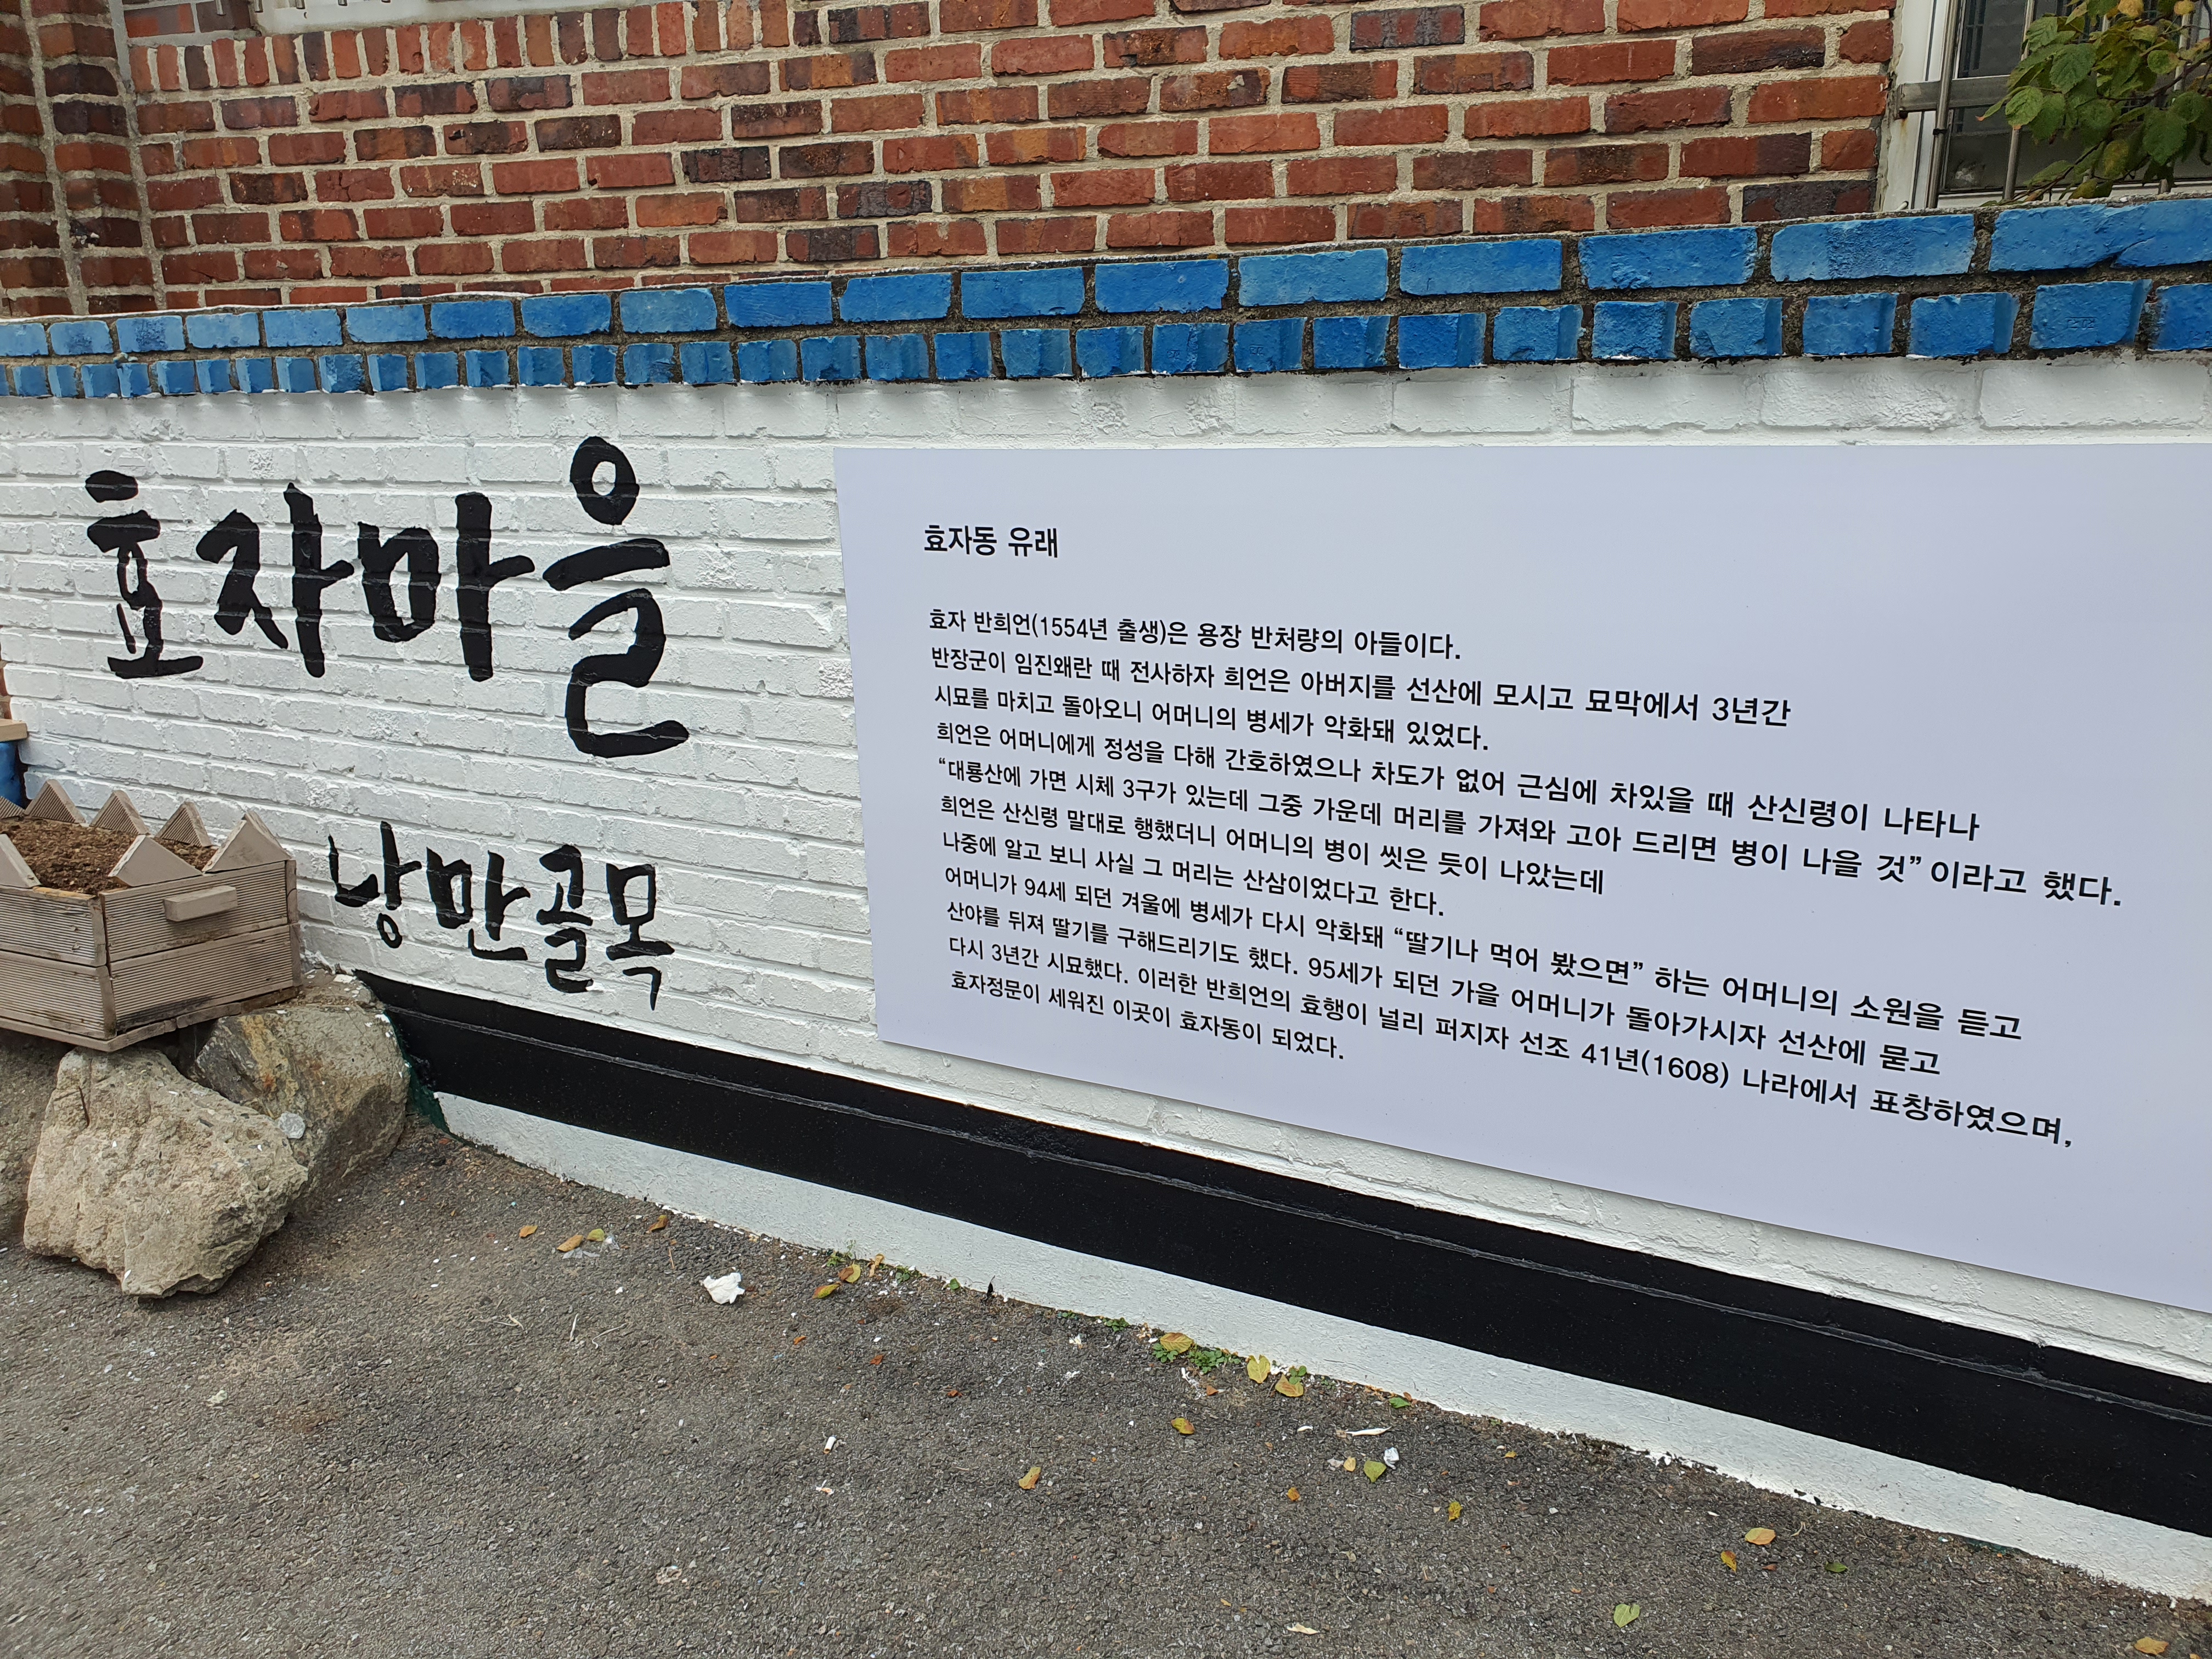 효자마을
낭만골목
효자동 유래
효자 반희언(1554년 출생)은 용장 반처량의 아들이다.
반장군이 임진왜란 때 전사하자 희언은 아버지를 선산에 모시고 묘막에서 3년간
시묘를 마치고 돌아오니 어머니의 병세가 악화돼 있었다.
희언은 어머니에게 정성을 다해 간호하였으나 차도가 없어 근심에 차있을 때 산신령이 나타나
“대룡산에 가면 시체 3구가 있는데 그중 가운데 머리를 가져와 고아 드리면 병이 나을 것” 이라고 했다.
희언은 산신령 말대로 행했더니 어머니의 병이 씻은 듯이 나았는데
나중에 알고 보니 사실 그 머리는 산삼이었다고 한다.
어머니가 94세 되던 겨울에 병세가 다시 악화돼 “딸기나 먹어 봤으면” 하는 어머니의 소원을 듣고
산야를 뒤져 딸기를 구해드리기도 했다. 95세가 되던 가을 어머니가 돌아가시자 선산에 묻고
다시 3년간 시묘했다. 이러한 반희언의 효행이 널리 퍼지자 선조 41년(1608) 나라에서 표창하였으며,
효자정문이 세워진 이곳이 효자동이 되었다.